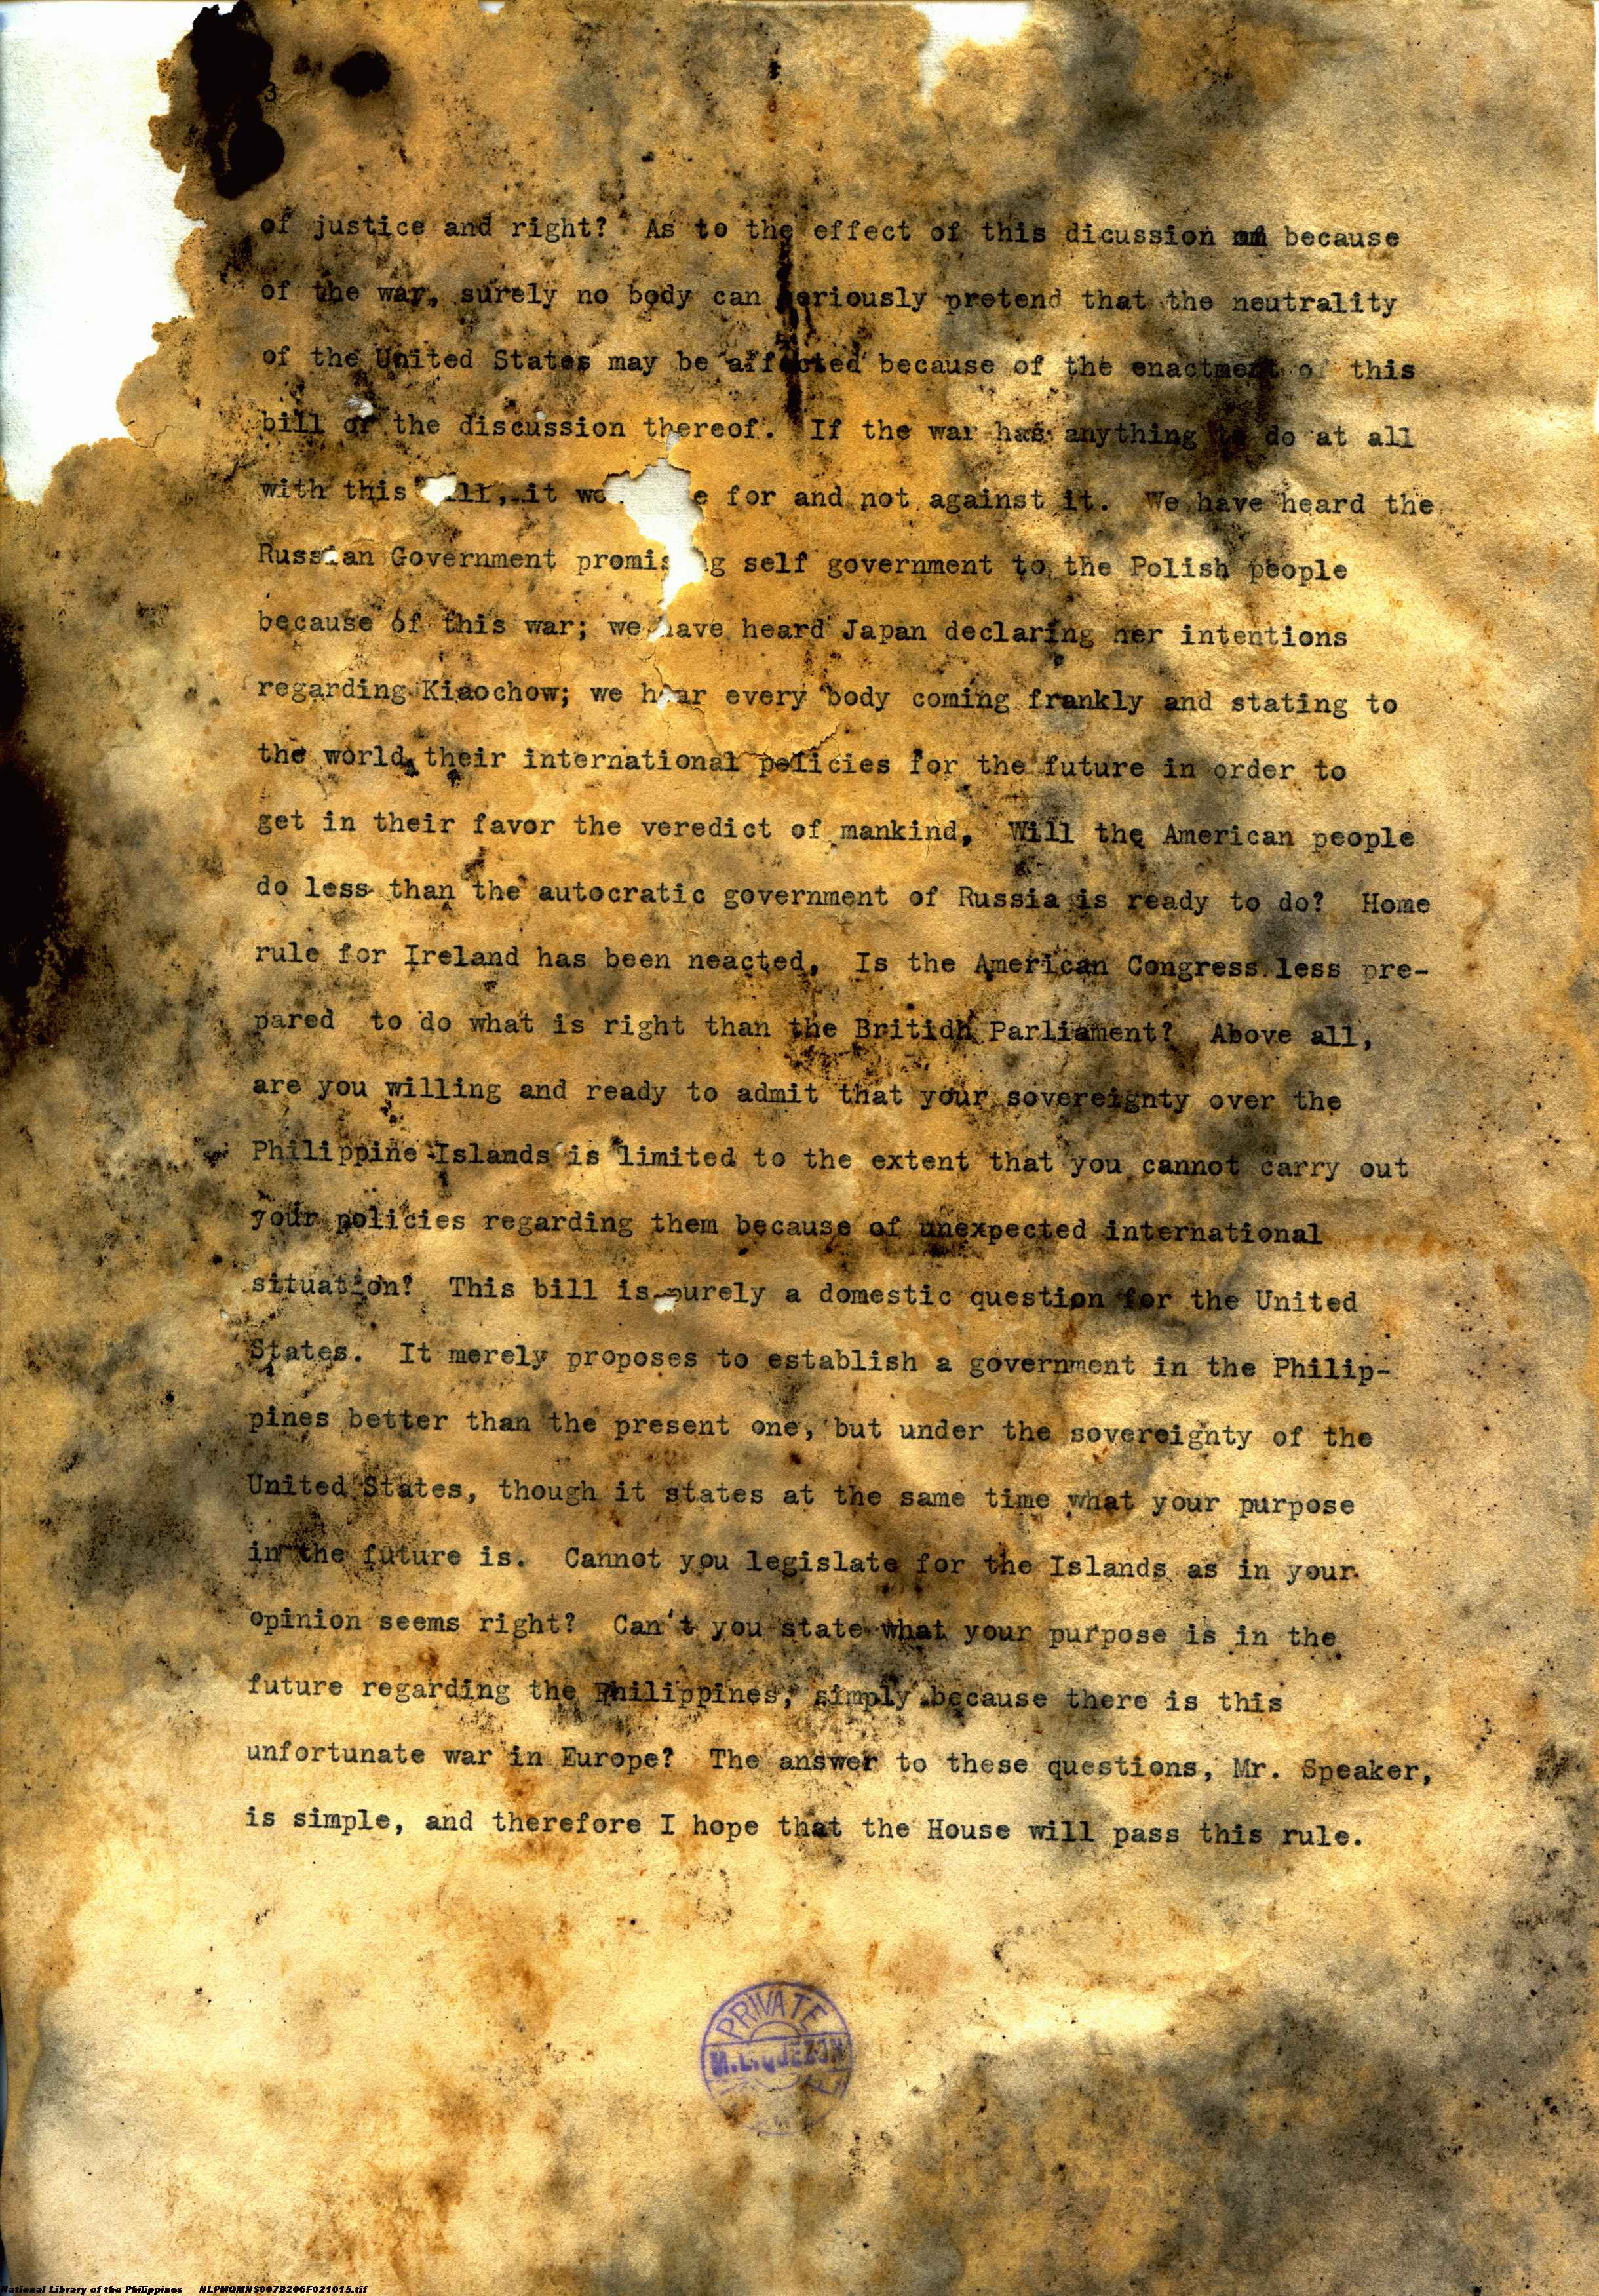 3
of justice and right? As to the effect of this dicussion because
of the war, surely no body can seriously pretend that the neutrality
of the United States may be affected because of the enactment of this
bill or the discussion thereof. If the war has anything to do at all
with this bill, it wo e for and not against it. We have heard the
Russian Government promising self government to the Polish people
because of this war; we have heard Japan declaring her intentions
regarding Kiaochow; we hear every body coming frankly and stating to
the world their international policies for the future in order to
get in their favor the veredict of mankind. Will the American people
do less than the autocratic government of Russia is ready to do? Home
rule for Ireland has been neacted. Is the American Congress less pre-
pared to do what is right than the Britidh Parliament? Above all,
are you willing and ready to admit that your sovereignty over the
Philippine Islands is limited to the extent that you cannot carry out
your policies regarding them because of unexpected international
situation? This bill is purely a domestic question for the United
States. It merely proposes to establish a government in the Philip-
pines better than the present one, but under the sovereignty of the
United States, though it states at the same time what your purpose
in the future is. Cannot you legislate for the Islands as in your
opinion seems right? Can't you state what your purpose is in the
future regarding the Philippines, simply because there is this
unfortunate war in Europe? The answer to these questions, Mr. Speaker,
is simple, and therefore I hope that the House will pass this rule.
PRIVATE
M.L.QUEZON
National Library of the Philippines NLPMQMNS007B206F021015.tif